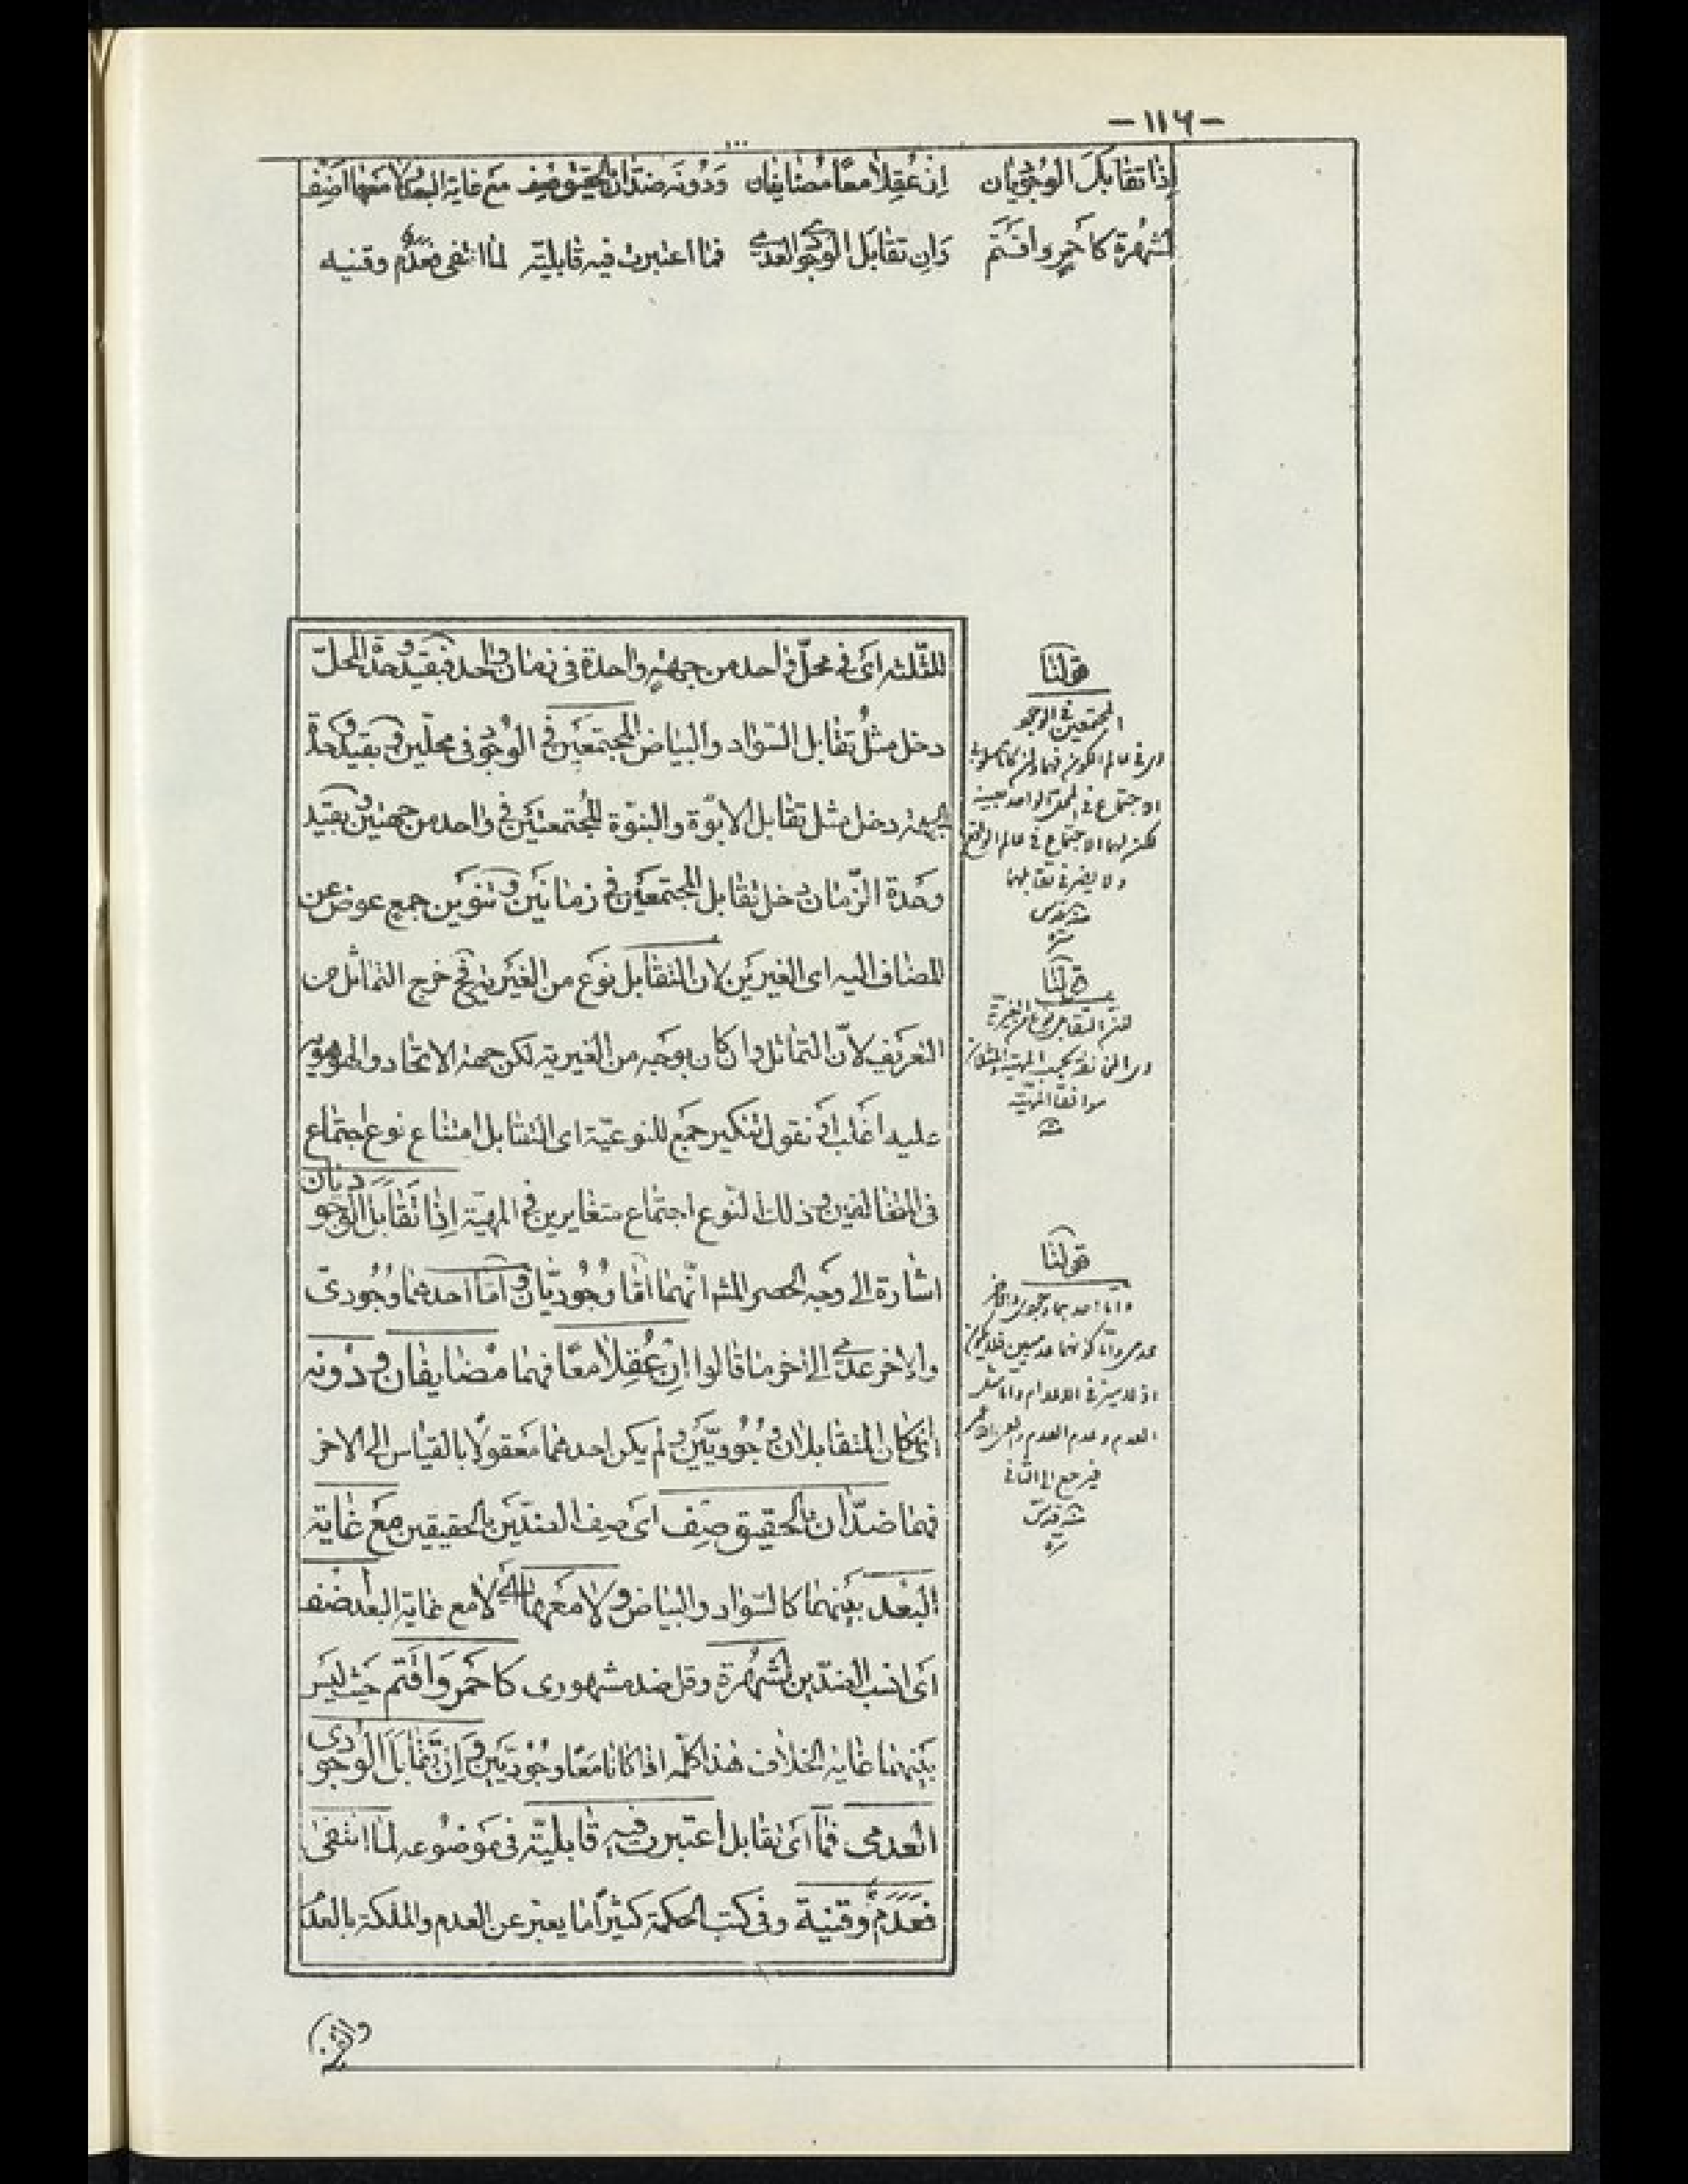 -١١٦-
إذا تقابل الوجوديان إن عقلا معًا مضايفان ودونه ضدان بالحقيق صف مع غاية البعد ولا معها أضف
لشهرة كأحمر وأقتم وإن تقابل الوجودي العدمي فما اعتبرت فيه قابلية لما انتفى فعدم وقنيه
للثلثه اى فى محلّ واحد من جهة واحدة فى زمان واحد فبقيد وحدة المحلّ
دخل مثل تقابل السّواد والبياض المجتمعين فى الوجود فى محلّين و بقيد وحدة
الجهة دخل مثل تقابل الابوّة والبنوّة المجتمعتين فى واحد من جهتين و بقيد
وحدة الزّمان دخل تقابل المجتمعين فى زمانين و تنوين جمع عوض عن
المضاف اليه اى الغيرين لان التقابل نوع من الغيرية فخرج التماثل من
التعريف لانّ التماثل وان كان بوجه من الغيرية لكن جهة الاتحاد والهوهوية
عليه اغلب او نقول تنكير جمع للنوعيّة اى التقابل امتناع نوع اجتماع
فى المتخالفين و ذلك النّوع اجتماع متغايرين فى المهيّة إذا تقابل الوجوديان
اشارة الى وجه الحصر المشـ انّهما امّا وجوديّان و امّا احدهما وجودىّ
والاخر عدمى الى اخر ما قالوا إن عقلا معًا فهما مضايفان و دونه
اى كان المتقابلان وجوديّين و لم يكن احدهما معقولًا بالقياس الى الاخر
فهما ضدّان بالحقيق صف اى صف الضدّين بالحقيقين مع غاية
البعد بينهما كالسّواد والبياض و لا معها اى لا مع غاية البعد أضف
اى انسب الضدّين لشهرة وقل ضد مشهورى كأحمر وأقتم حيث ليس
بينهما غاية الخلاف هذا كلّه اذا كانا معًا وجوديّين و إن تقابل الوجودى
العدمى فما اى تقابل اعتبرت فيه قابليّة فى موضوعه لما انتفى
فعدم وقنية وفى كتب الحكمة كثيرًا ما يعبر عن العدم والملكة بالعد
قولنا
المجتمعين فى الوجود
اى فى عالم الكون
لكن لهما الاجتماع فى عالم الواقع
ولا يضر فى تقابلهما
قولنا
لان التقابل نوع من الغيرية
قولنا
واما احدهما وجودى والاخر
عدمى واما كونهما عدميين فلا يكون
اذ لا ميز فى الاعدام واما مثل
العدم وعدم العدم
فيرجع الى الثانى